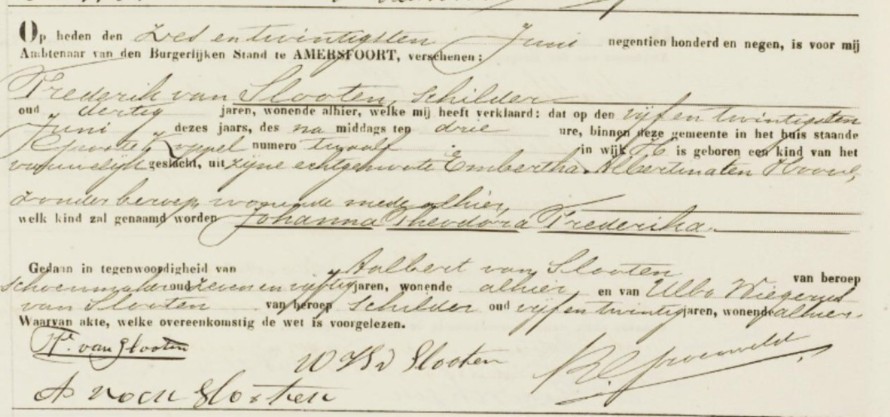 Op heden den Zes en twintigsten Juni negentien honderd en negen, is voor mij
Ambtenaar van den Burgerlijken Stand te AMERSFOORT, verschenen:
Frederik van Slooten, schilder
oud dertig jaren, wonende alhier, welke mij heeft verklaard: dat op den vijf en twintigsten
Juni dezes jaars, des na middags ten drie ure, binnen deze gemeente in het huis staande
numero twaalf in wijk H is geboren een kind van het
vrouwelijk geslacht, uit zijne echtgenoote Embertha Albertina ten
zonder beroep, wonende mede alhier,
welk kind zal genaamd worden Johanna Theodora Frederika.
Gedaan in tegenwoordigheid van Aalbert van Slooten van beroep
schoenmaker oud zeven en vijftig jaren, wonende alhier en van Ulbo Wiegerus
van Slooten van beroep schilder oud vijf en twintig jaren, wonende alhier.
Waarvan akte, welke overeenkomstig de wet is voorgelezen.
Fr. van Slooten
v Slooten
A van Slooten